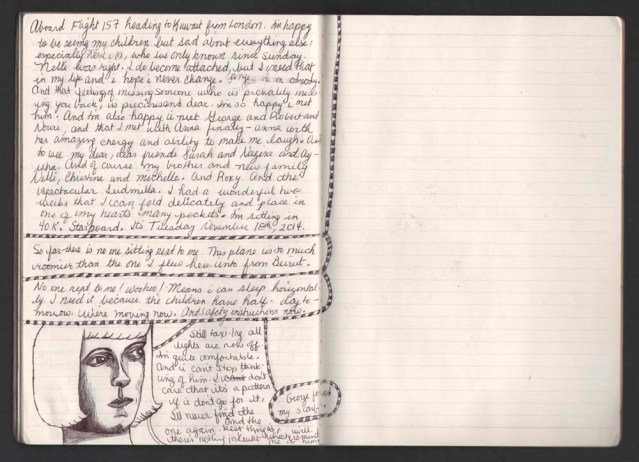 Aboard Flight 157 heading to Kuwait from London. I'm happy
to be seeing my children but sad about everything else:
especially who ive only known since Sunday.
Nelli was right. I do become attached, but I need that
in my life and i hope i never change.
And that feeling of missing someone who is probably miss-
ing you back, is precious and dear. I'm so happy i met
him. And I'm also happy i met George and Robert and
and that I met with Anna finally - Anna with
her amazing energy and ability to make me laugh.
to see my dear, dear friends Sarah and and
And of course my brother and new family
Nelli, Christine and Michelle. And Roxy. And the
spectacular Ludmilla. I had a wonderful two
weeks that I can fold delicately and place in
one of my hearts many pockets. I'm sitting in
40K. Starboard. It's Tuesday November 18th, 2014.
So far there is no one sitting next to me. This plane is so much
roomier than the one I flew here into from Beirut.
No one next to me! Woohoo! Means i can sleep horizontal-
ly. I need it because the children have half-day to-
morrow. We're moving now. And safety instructions now.
Still taxi-ing. all
lights are now off.
I'm quite comfortable.
And i can't stop think-
ing of him. I don't
care that it's a pattern
if i don't go for it,
I'll never find the
one again. and the
best things, will
there's nothing
George
my scarf